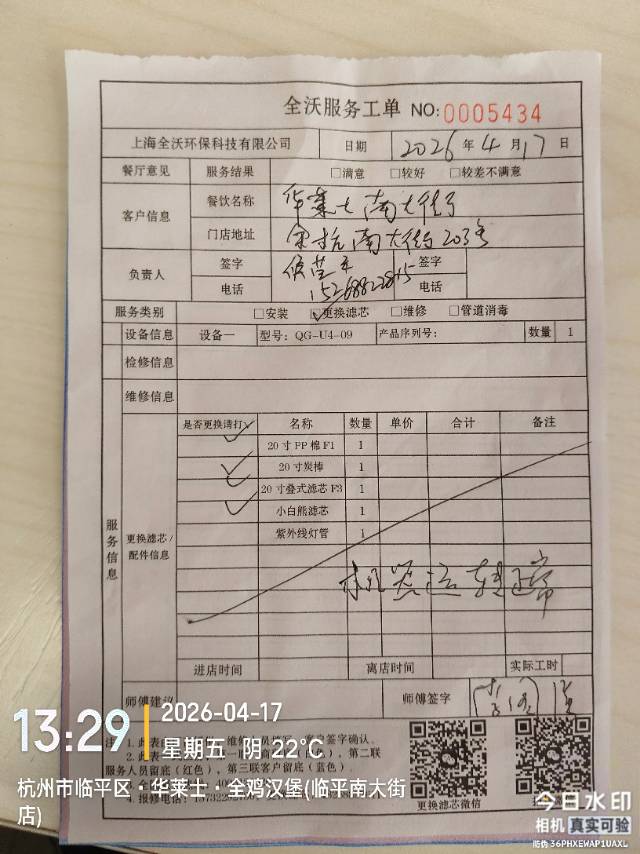 全沃服务工单 NO:0005434
上海全沃环保科技有限公司 日期 2026 年 4 月 17 日
餐厅意见 服务结果 □满意 □较好 □较差不满意
客户信息 餐饮名称 华莱士南大街
门店地址 南大街203号
负责人 签字 签字
电话 15268822815 电话
服务类别 □安装 ☑更换滤芯 □维修 □管道消毒
设备信息 设备一 型号: QG-U4-09 产品序列号: 数量 1
检修信息
维修信息
服务信息
更换滤芯/配件信息
是否更换请打√ 名称 数量 单价 合计 备注
✓ 20寸PP棉F1 1
✓ 20寸炭棒 1
✓ 20寸叠式滤芯F3 1
小白熊滤芯 1
紫外线灯管 1
机器运转正常
进店时间 离店时间 实际工时
师傅建议 师傅签字
注
服务人员留底(红色),第三联客户留底(蓝色)。
4.报修电话:
更换滤芯微信
13:29
2026-04-17
星期五 阴 22℃
杭州市临平区·华莱士·全鸡汉堡(临平南大街店)
今日水印
相机 真实可验
防伪 36PHXEWAP1UAXL